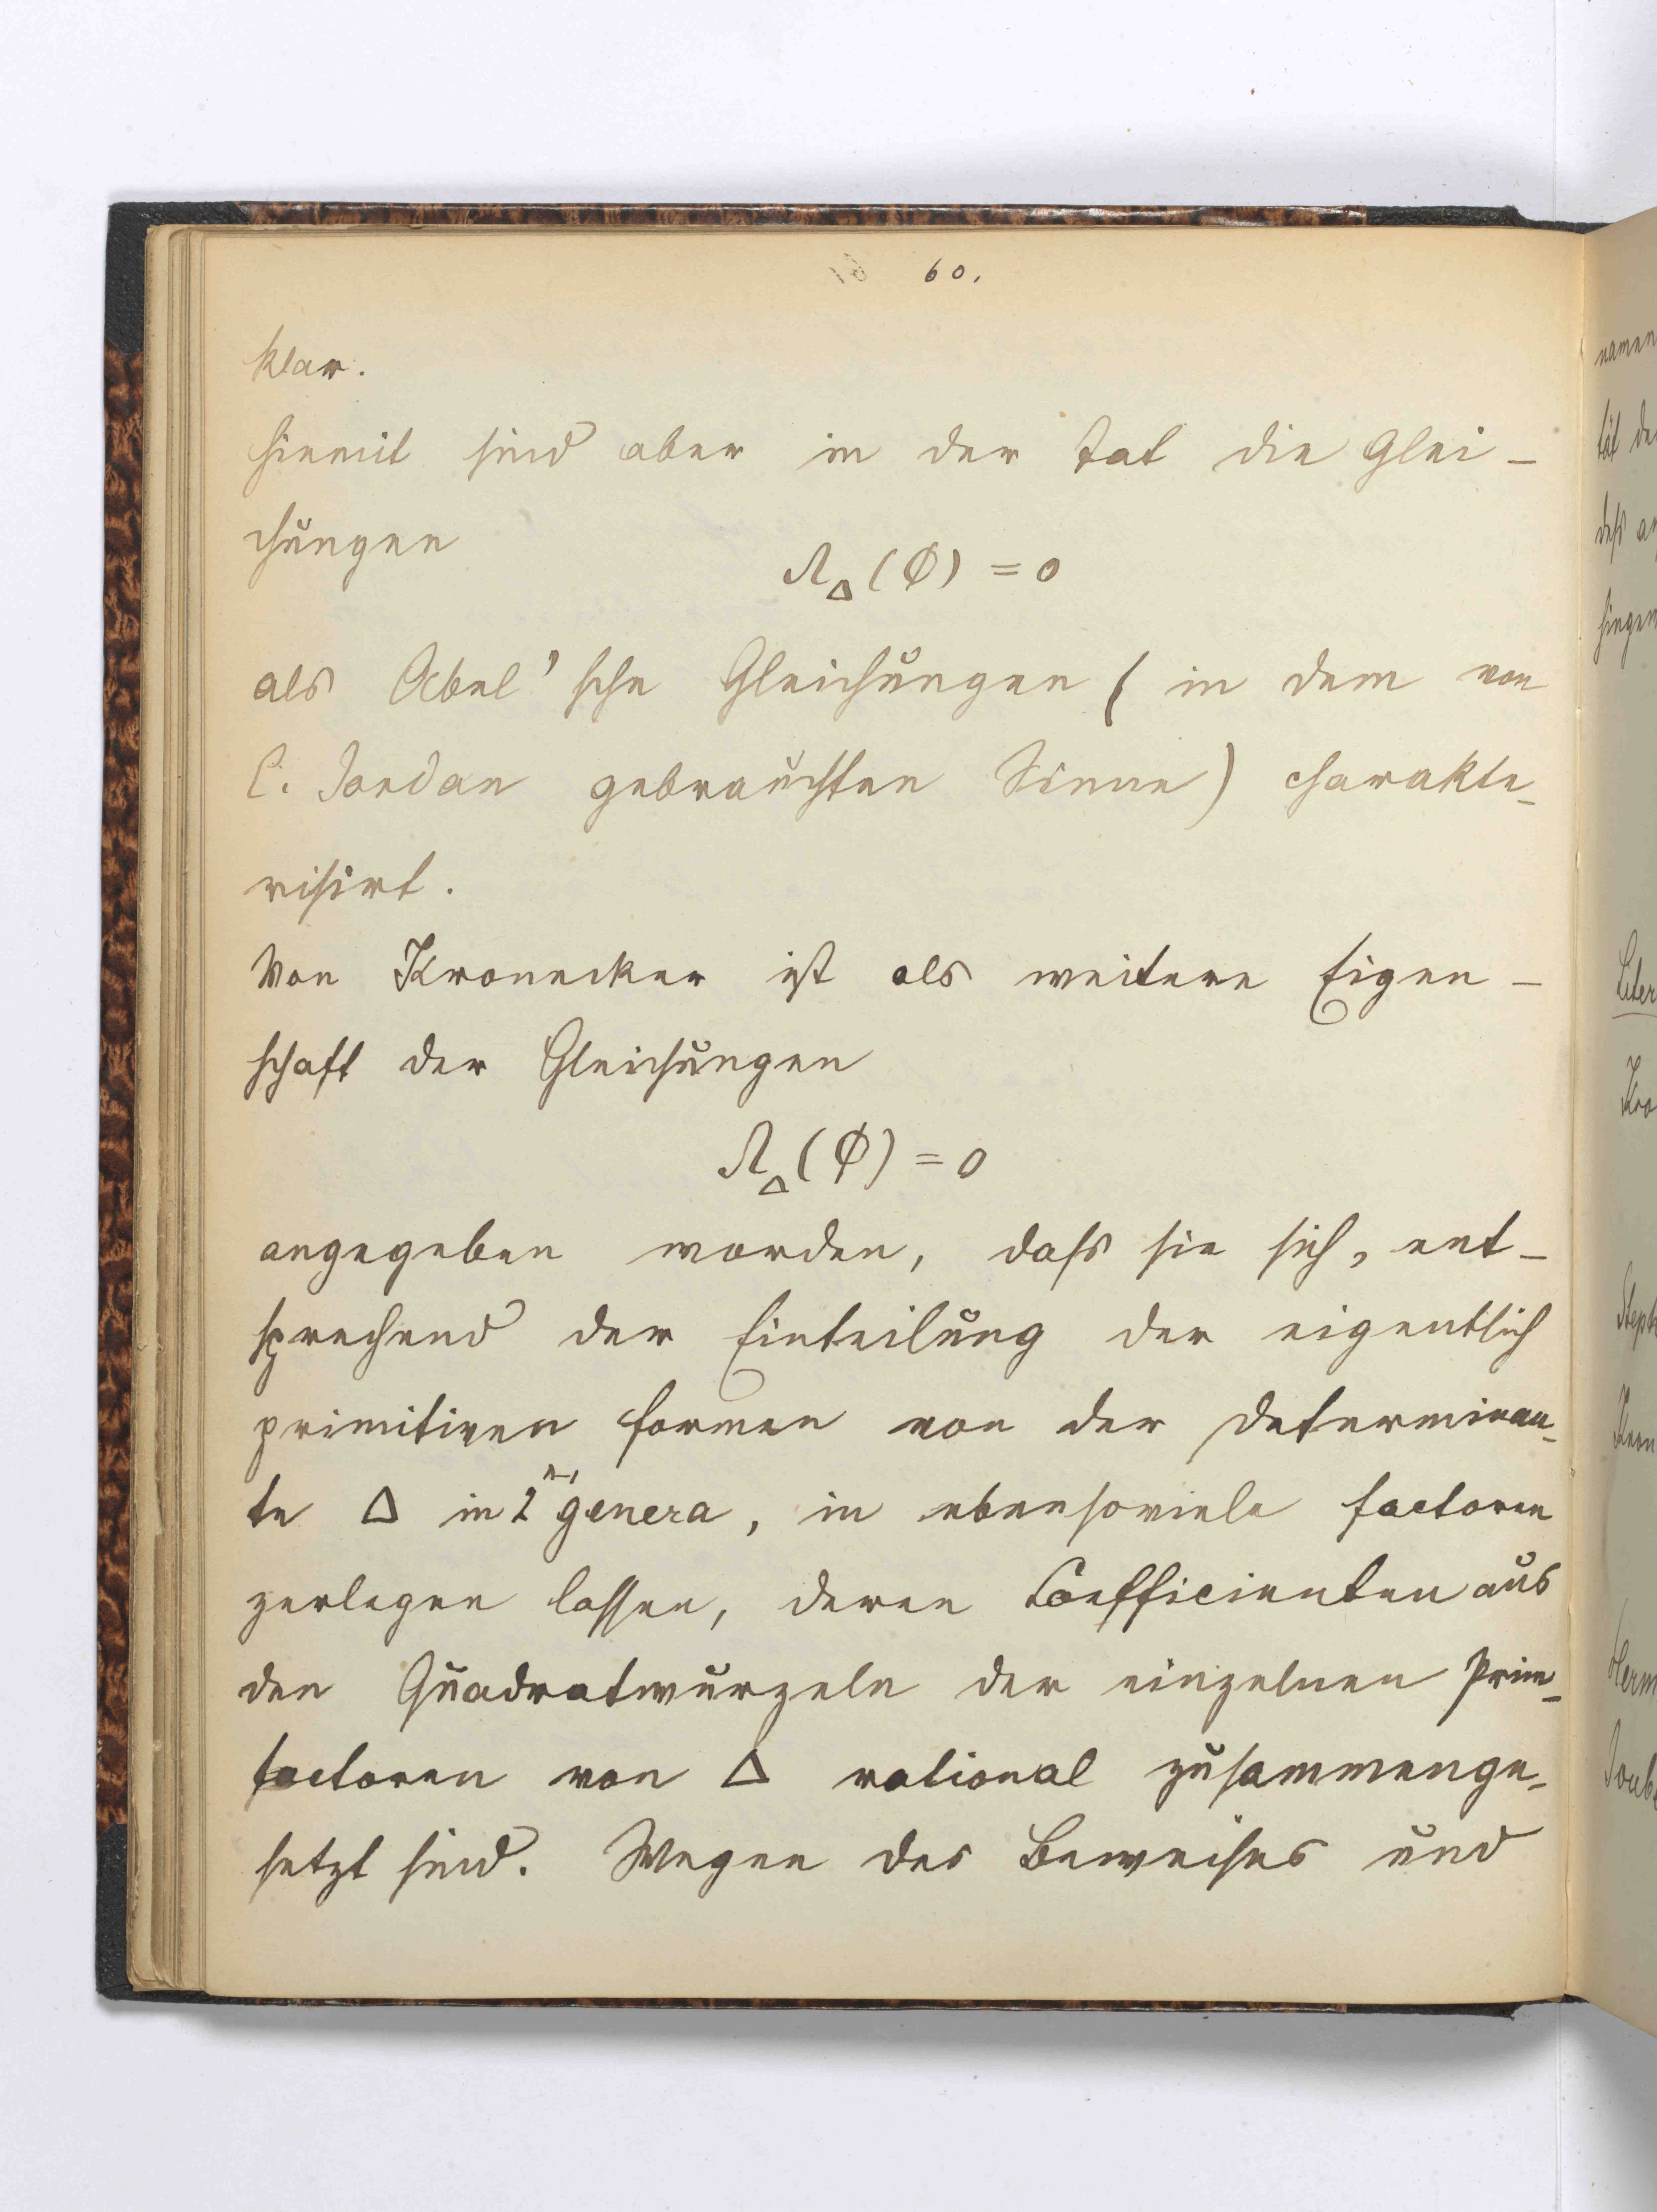 60.
klar.
Hiemit sind aber in der Tat die Glei-
chungen
Λ_Δ(ϕ) = 0
als Abel'sche Gleichungen (in dem von
C. Jordan gebrauchten Sinne) charakte-
risirt.
Von Kronecker ist als weitere Eigen-
schaft der Gleichungen
Λ_Δ(ϕ) = 0
angegeben worden, dass sie sich, ent-
sprechend der Einteilung der eigentlich
primitiven Formen von der Determinan-
te Δ in 2^{n-1} genera, in ebensoviele Factoren
zerlegen lassen, deren Coefficienten aus
den Quadratwurzeln der einzelnen Prim-
factoren von Δ rational zusammenge-
setzt sind. Wegen des Beweises und